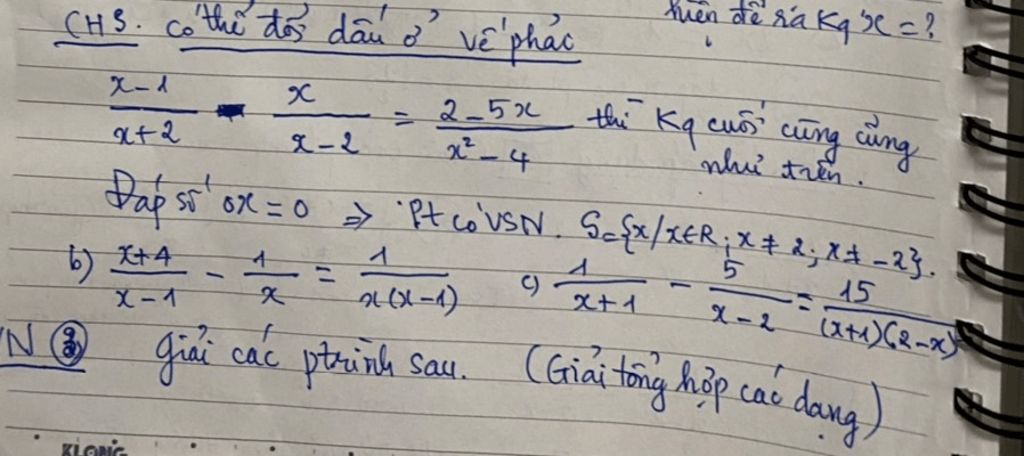 CHS. có thể đổi dấu ở vế phải
điều kiện để ra Kq x = ?
x-1/x+2 - x/x-2 = 2-5x/x²-4 thì Kq cuối cùng cũng
như trên.
Đáp số 0x = 0 ⇒ Pt có VSN. S = {x/x∈R; x ≠ 2; x ≠ -2}.
b) x+4/x-1 - 1/x = 1/x(x-1) c) 1/x+1 - 5/x-2 = 15/(x+1)(2-x)
N ③ giải các ptrình sau. (Giải tổng hợp các dạng)
KLONG